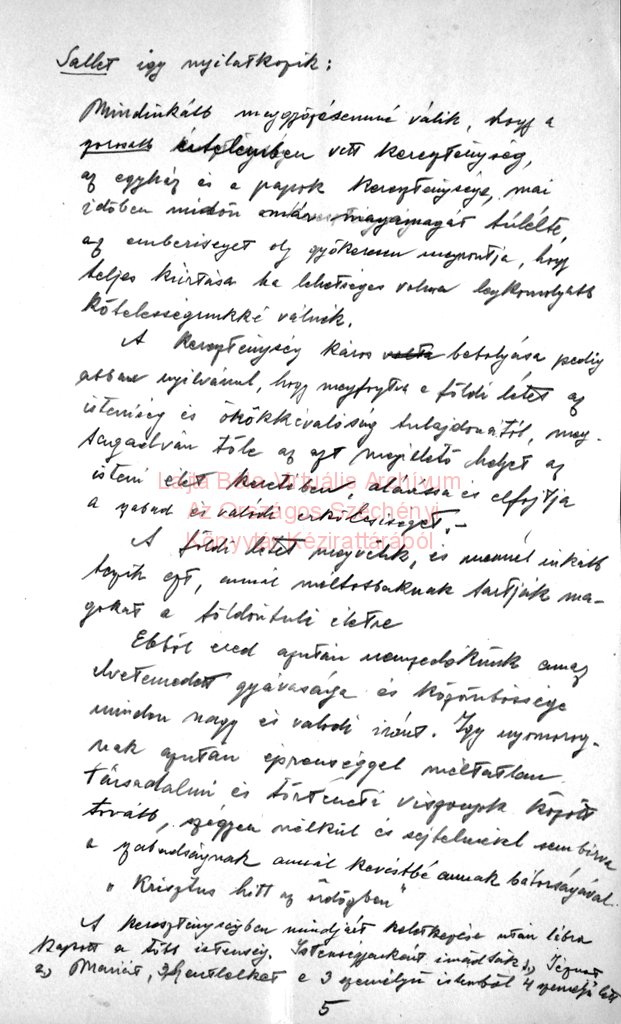 Sallet így nyilatkozik:
Mindinkább meggyőződésemmé válik, hogy a
szorosabb értelemben vett kereszténység,
az egyház és a papok kereszténysége, mai
időben midőn önmagát túlélte,
az emberiséget oly gyökeresen megrontja, hogy
teljes kiirtása ha lehetséges volna legkomolyabb
kötelességünkké válnék.
A kereszténység káros volta befolyása pedig
abban nyilvánul, hogy megfosztva a földi létet az
istenség és örökkévalóság tulajdonától, meg-
tagadván tőle az azt megillető helyet az
isteni élet keretében, aláássa és elfojtja
a szabad és valódi erkölcsiséget.-
A földi létet megvetik, és mennél inkább
teszik ezt, annál méltóbbaknak tartják ma-
gokat a földöntúli életre
Ebből ered azután nemzedékünk amaz
elvetemedett gyávasága és közönbössége
minden nagy és valódi iránt. Így nyomorog-
nak azután méltatlan
társadalmi és történeti viszonyok között
tovább, szégyen nélkül és sejtelmével sem bírva
a szabadságnak annál kevésbé annak bátorságával.
"Krisztus hitt az ördögben"
A kereszténységben mindjárt keletkezése után lábra
kapott a több istenség. Istenségenként imádták 1, Jézust
2, Máriát, 3 szentlelket a 3 személyű istenből 4 személyű lett
5
Lajta Béla Virtuális Archívum
Az Országos Széchényi
Könyvtár Kézirattárából